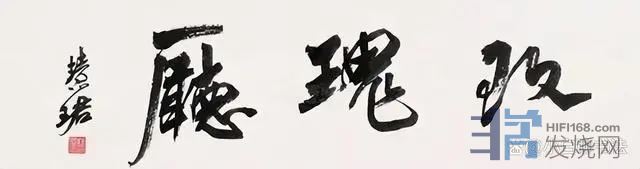 玫瑰廳
慧珺
HIFI168.com
发烧网